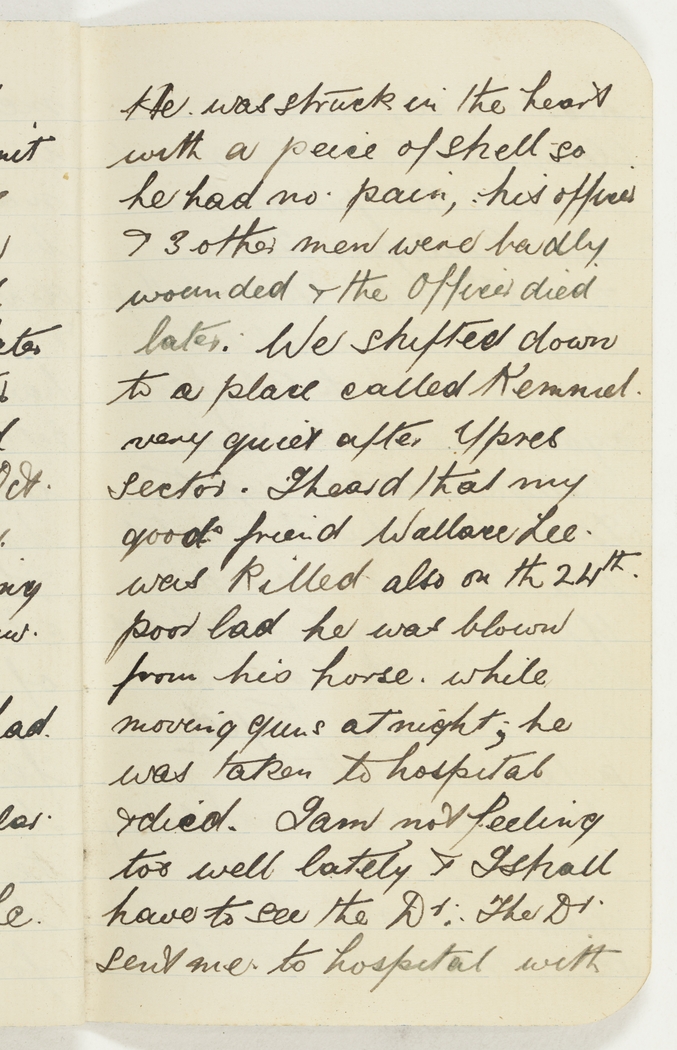 He. was struck in the heart
with a peice of shell so
he had no pain, his officer
& 3 other men were badly
wounded & the Officer died
later. We shifted down
to a place called Kemmel.
very quiet after Ypres
sector. I heard that my
good friend Wallace Lee.
was killed also on th 24th.
poor lad he was blown
from his horse. while
moving guns at night; he
was taken to hospital
& died. I am not feeling
too well lately & I shall
have to see the Dr. The Dr.
sent me to hospital with